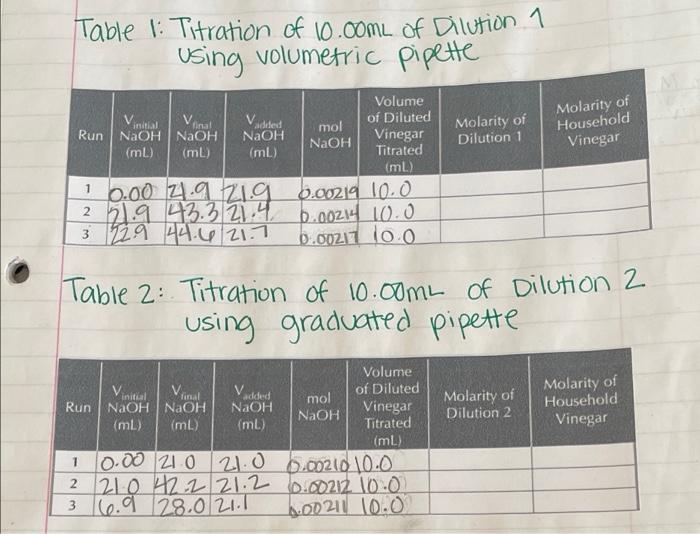 Table 1: Titration of 10.00mL of Dilution 1
using volumetric pipette
Run V initial NaOH (mL) V final NaOH (mL) V added NaOH (mL) mol NaOH Volume of Diluted Vinegar Titrated (mL) Molarity of Dilution 1 Molarity of Household Vinegar
1 0.00 21.9 21.9 0.00219 10.0
2 21.9 43.3 21.4 0.00214 10.0
3 22.9 44.6 21.7 0.00217 10.0
Table 2: Titration of 10.00mL of Dilution 2
using graduated pipette
Run V initial NaOH (mL) V final NaOH (mL) V added NaOH (mL) mol NaOH Volume of Diluted Vinegar Titrated (mL) Molarity of Dilution 2 Molarity of Household Vinegar
1 0.00 21.0 21.0 0.00210 10.0
2 21.0 42.2 21.2 0.00212 10.0
3 6.9 28.0 21.1 0.00211 10.0